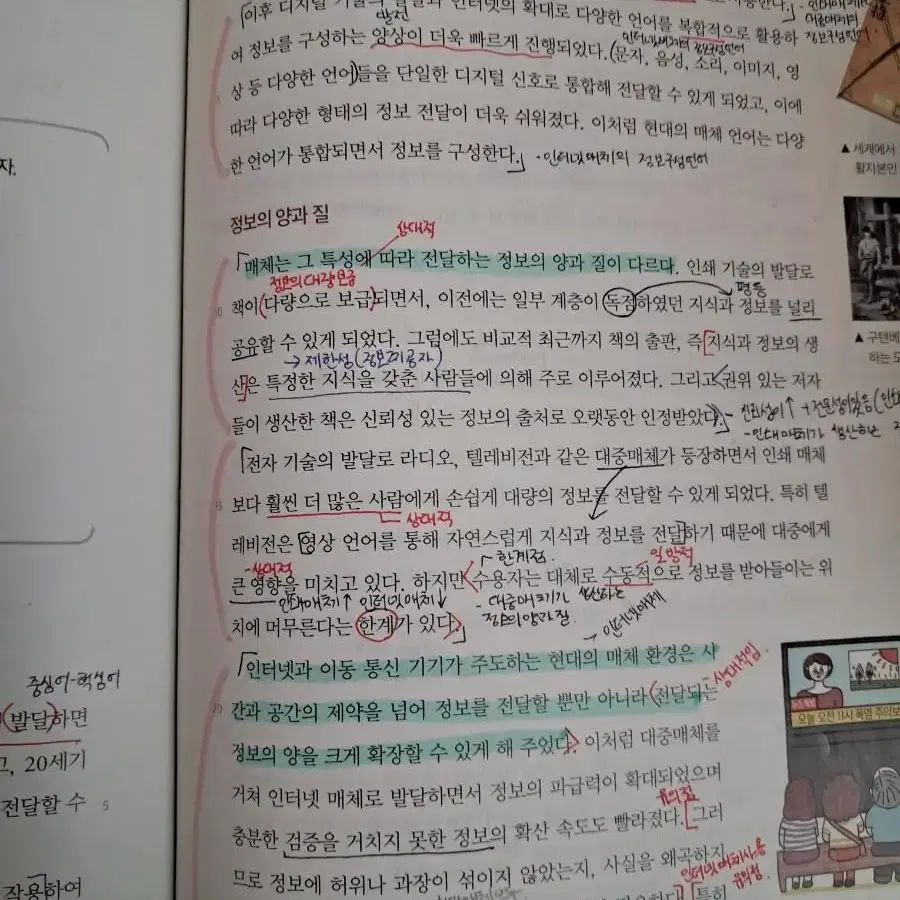 이후 디지털 기술의 발달과 인터넷의 확대로 다양한 언어를 복합적으로 활용하
발전
여 정보를 구성하는 양상이 더욱 빠르게 진행되었다. (문자, 음성, 소리, 이미지, 영
상 등 다양한 언어)들을 단일한 디지털 신호로 통합해 전달할 수 있게 되었고, 이에
따라 다양한 형태의 정보 전달이 더욱 쉬워졌다. 이처럼 현대의 매체 언어는 다양
한 언어가 통합되면서 정보를 구성한다.」 - 인터넷매체의 정보구성언어
정보의 양과 질
상대적
「매체는 그 특성에 따라 전달하는 정보의 양과 질이 다르다. 인쇄 기술의 발달로
정보의 대량보급
평등
10 책이 (다량으로 보급)되면서, 이전에는 일부 계층이 독점하였던 지식과 정보를 널리
공유할 수 있게 되었다. 그럼에도 비교적 최근까지 책의 출판, 즉 [지식과 정보의 생
→ 제한성 (정보제공자)
산]은 특정한 지식을 갖춘 사람들에 의해 주로 이루어졌다. 그리고 권위 있는 저자
들이 생산한 책은 신뢰성 있는 정보의 출처로 오랫동안 인정받았다.」 - 신뢰성이↑ + 전문성이있음
- 인쇄매체가 생산하는
「전자 기술의 발달로 라디오, 텔레비전과 같은 대중매체가 등장하면서 인쇄 매체
15 보다 훨씬 더 많은 사람에게 손쉽게 대량의 정보를 전달할 수 있게 되었다. 특히 텔
상대적
레비전은 영상 언어를 통해 자연스럽게 지식과 정보를 전달하기 때문에 대중에게
- 상대적
한계점
일방적
큰 영향을 미치고 있다. 하지만 수용자는 대체로 수동적으로 정보를 받아들이는 위
인쇄매체↑ 인터넷매체↓
- 대중매체가 생산하는
정보의양과질
치에 머무른다는 한계가 있다.」
→ 인터넷매체
「인터넷과 이동 통신 기기가 주도하는 현대의 매체 환경은 시
상대적임.
20 간과 공간의 제약을 넘어 정보를 전달할 뿐만 아니라 (전달되는
정보의 양을 크게 확장할 수 있게 해 주었다. 이처럼 대중매체를
거쳐 인터넷 매체로 발달하면서 정보의 파급력이 확대되었으며
유의점
충분한 검증을 거치지 못한 정보의 확산 속도도 빨라졌다. [그러
인터넷매체사용
유의점.
므로 정보에 허위나 과장이 섞이지 않았는지, 사실을 왜곡하지
특히
▲ 세계에서
활자본인
▲ 구텐베
하는 모
오늘 오전 11시 폭염 주의보
자.
중심어-핵심어
(발달)하면
20세기
전달할 수 5
작용하여